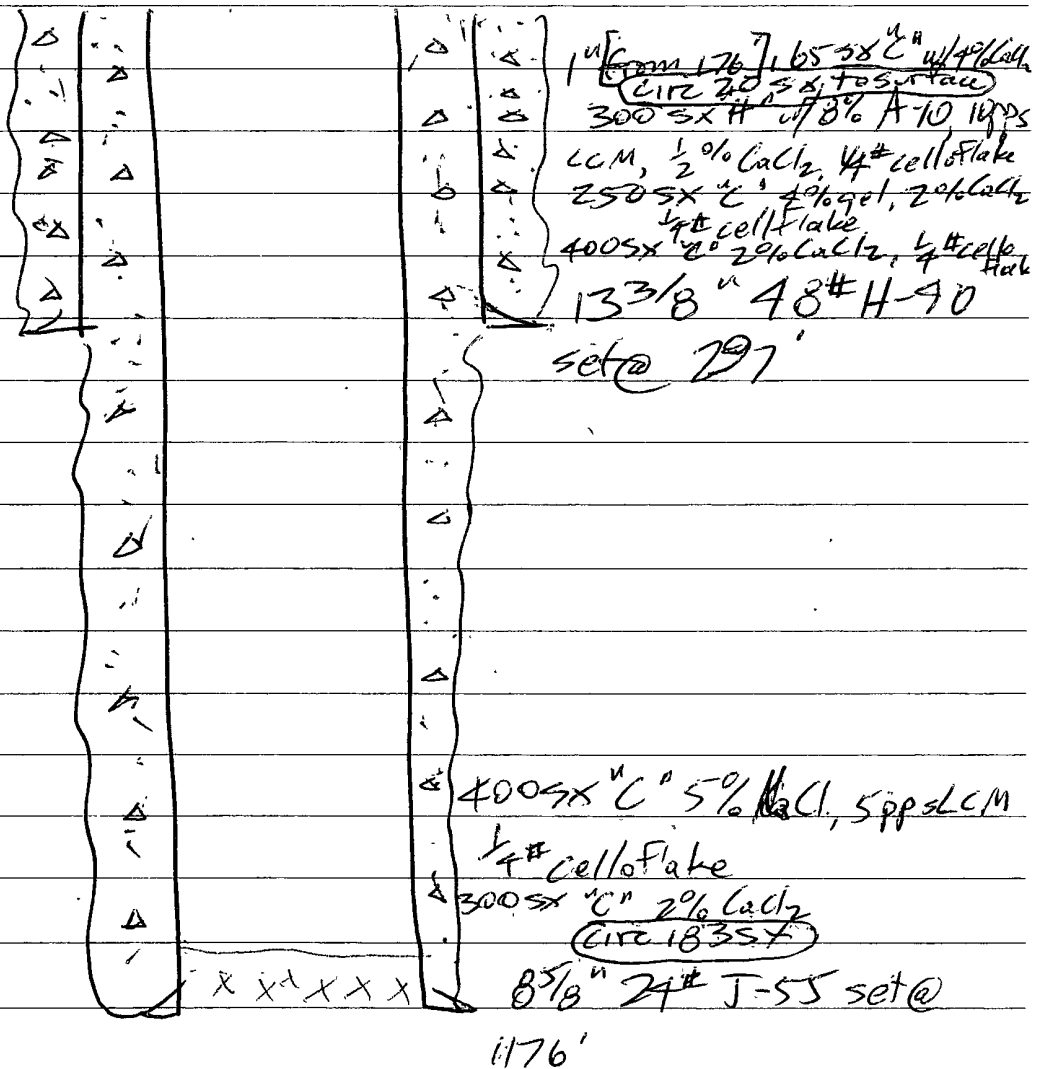 1" [from 176'] 165 sx "C" w/ 4% CaCl2
circ 20 sx to surface
300 sx "H" w/ 8% A-10, 10pps
LCM, 1/2% CaCl2, 1/4# celloflake
250 sx "C" 4% gel, 2% CaCl2
1/4# celloflake
400 sx "C" 2% CaCl2, 1/4# cello
flak
13 3/8" 48# H-40
set @ 297'
400 sx "C" 5% NaCl, 5pps LCM
1/4# celloflake
300 sx "C" 2% CaCl2
circ 183 sx
8 5/8" 24# J-55 set @
1176'